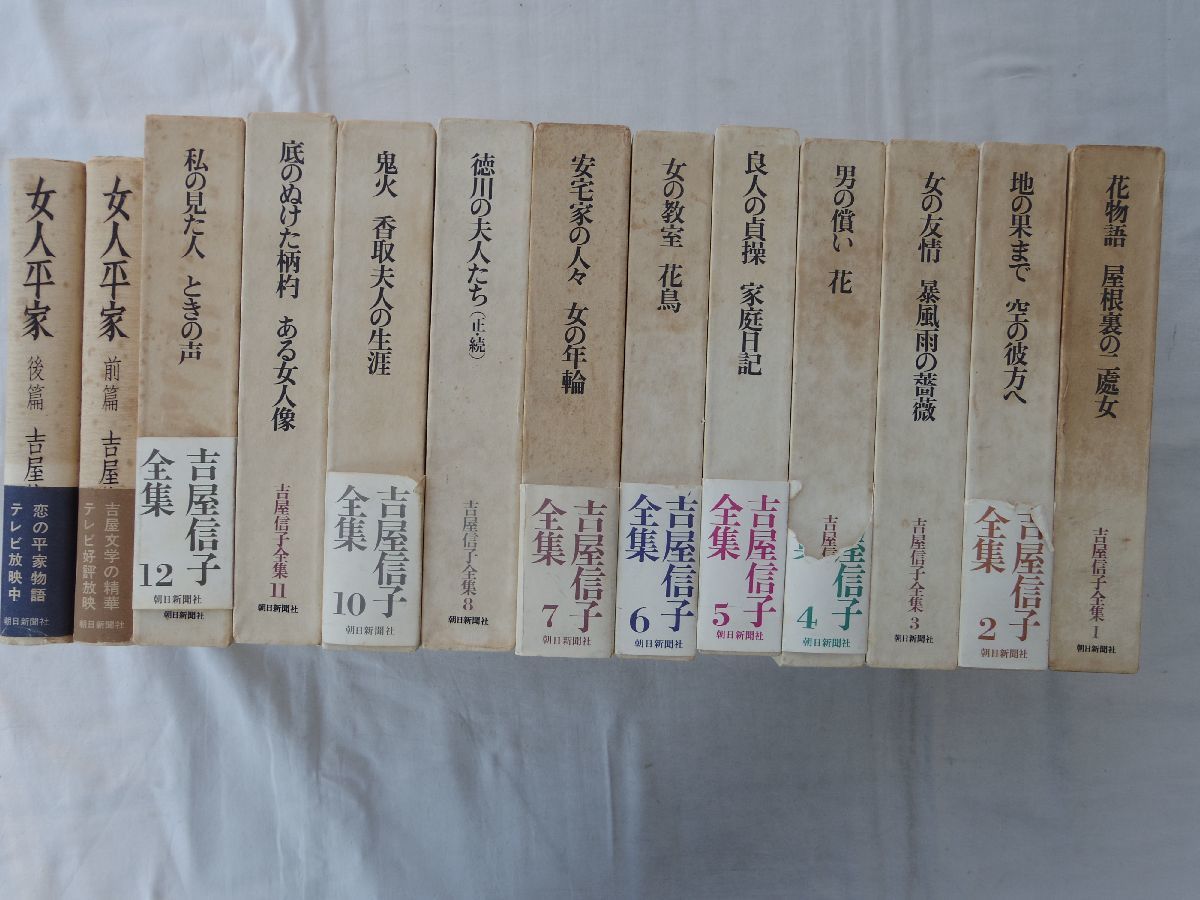 女人平家 後篇 吉屋
恋の平家物語
テレビ放映中
朝日新聞社
女人平家 前篇 吉屋
吉屋文学の精華
テレビ好評放映
朝日新聞社
私の見た人 ときの声
吉屋信子
全集
12
朝日新聞社
朝日新聞社
底のぬけた柄杓 ある女人像
吉屋信子全集 11
朝日新聞社
鬼火 香取夫人の生涯
吉屋信子
全集
10
朝日新聞社
徳川の夫人たち(正・続)
吉屋信子全集 8
朝日新聞社
安宅家の人々 女の年輪
吉屋信子
全集
7
朝日新聞社
女の教室 花鳥
吉屋信子
全集
6
朝日新聞社
良人の貞操 家庭日記
吉屋信子
全集
5
朝日新聞社
男の償い 花
吉屋信
屋信子
4
朝日新聞社
女の友情 暴風雨の薔薇
吉屋信子全集 3
朝日新聞社
地の果まで 空の彼方へ
吉屋信子
全集
2
朝日新聞社
花物語 屋根裏の二處女
吉屋信子全集 1
朝日新聞社